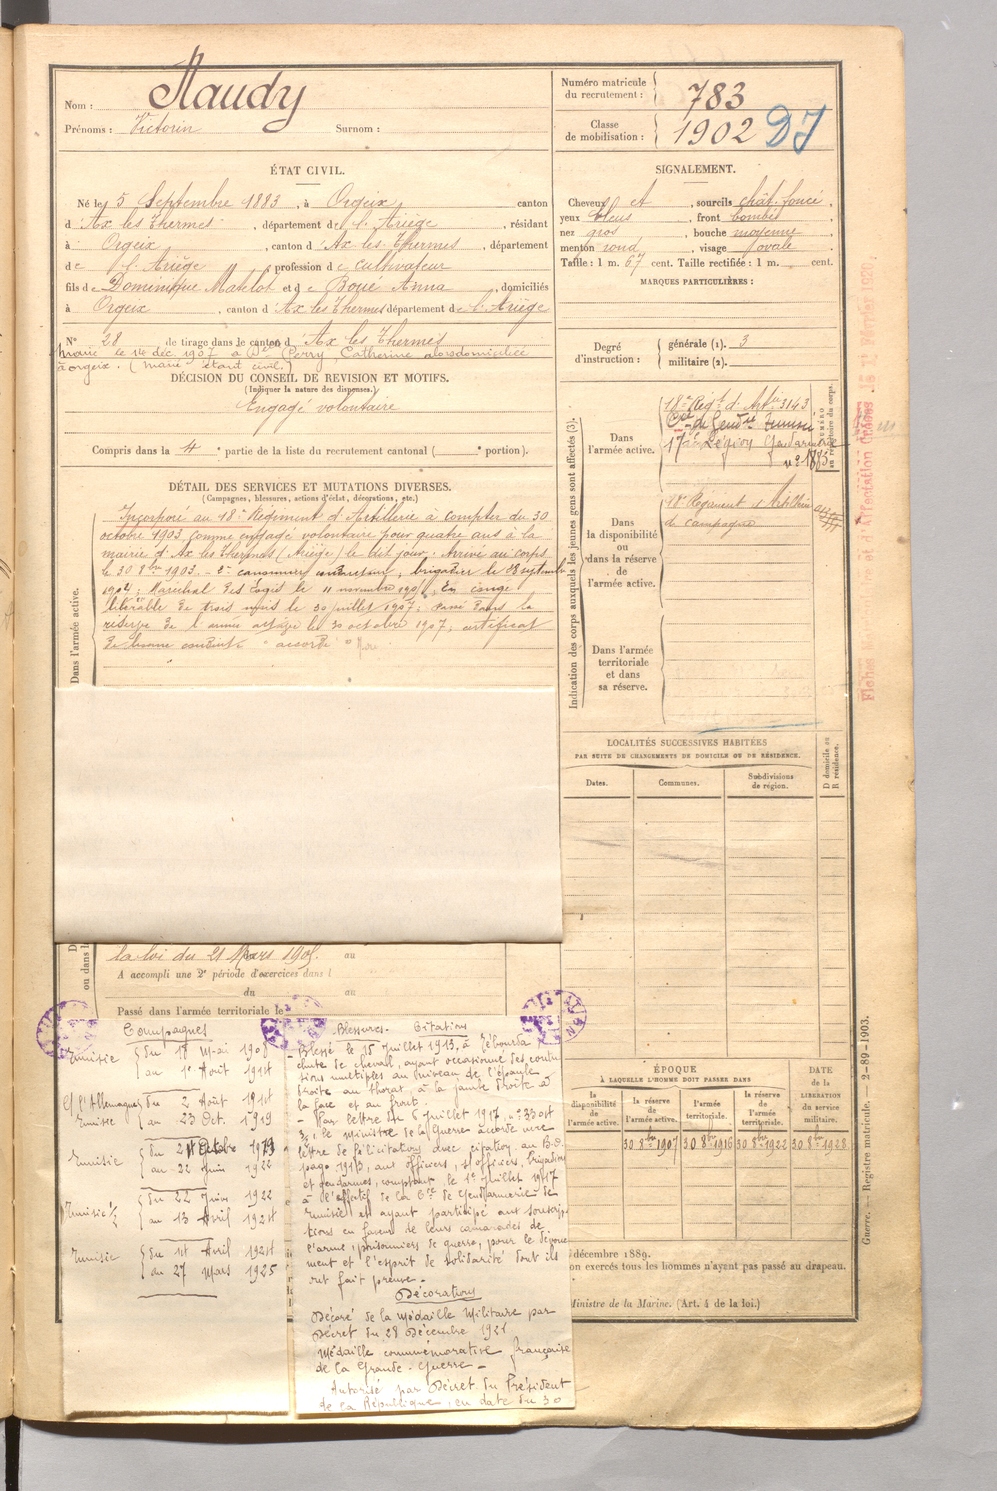 Nom : Maudy
Prénoms : Victorin Surnom :
Numéro matricule du recrutement : 783
Classe de mobilisation : 1902 DJ
ÉTAT CIVIL.
Né le 5 Septembre 1883, à Orgeix, canton
d'Ax les Thermes, département de l'Ariège, résidant
à Orgeix, canton d'Ax les Thermes, département
de l'Ariège, profession de cultivateur
fils de Dominique Matelot et de Boue Anna, domiciliés
à Orgeix, canton d'Ax les Thermes département de l'Ariège
N° 28 de tirage dans le canton d'Ax les Thermes
Marié le 14 déc. 1907 à Dlle Perry, Catherine domiciliée
à orgeix. (Marié étant civil.)
DÉCISION DU CONSEIL DE REVISION ET MOTIFS.
(Indiquer la nature des dispenses.)
Engagé volontaire
Compris dans la 4e partie de la liste du recrutement cantonal ( e portion).
DÉTAIL DES SERVICES ET MUTATIONS DIVERSES.
(Campagnes, blessures, actions d'éclat, décorations, etc.)
Dans l'armée active.
Incorporé au 18e Régiment d'Artillerie à compter du 30
octobre 1903, comme engagé volontaire pour quatre ans à la
mairie d'Ax les Thermes (Ariège) le dit jour. Arrivé au corps
le 30 8bre 1903. – 2e canonnier conducteur, brigadier le 23 septembre
1904; Maréchal des Logis le 11 novembre 1906. En congé
libérable de trois mois le 30 juillet 1907; Passé dans la
réserve de l'armée active le 30 octobre 1907; certificat
de bonne conduite "accordé"
la loi du 21 Mars 1905. au
A accompli une 2e période d'exercices dans l
du au
Passé dans l'armée territoriale le
SIGNALEMENT.
Cheveux et, sourcils chât. foncé,
yeux bleus, front bombé,
nez gros, bouche moyenne,
menton rond, visage ovale
Taille : 1 m. 67 cent. Taille rectifiée : 1 m. cent.
MARQUES PARTICULIÈRES :
Degré d'instruction : générale (1). 3
militaire (2).
Indication des corps auxquels les jeunes gens sont affectés (3).
NUMÉRO au répertoire du corps.
Dans l'armée active.
18e Regt d'Artie 3143
Cie de Gendie Tunisie
17e Légion Gendarmerie
n° 1885
Dans la disponibilité ou dans la réserve de l'armée active.
18e Régiment d'Artillerie
de campagne
Dans l'armée territoriale et dans sa réserve.
LOCALITÉS SUCCESSIVES HABITÉES
PAR SUITE DE CHANGEMENTS DE DOMICILE OU DE RÉSIDENCE.
Dates. Communes. Subdivisions de région. D domicile ou R résidence.
ÉPOQUE
À LAQUELLE L'HOMME DOIT PASSER DANS
DATE de la LIBÉRATION du service militaire.
la disponibilité de l'armée active.
la réserve de l'armée active.
l'armée territoriale.
la réserve de l'armée territoriale.
30 8bre 1907 30 8bre 1916 30 8bre 1922 30 8bre 1928
décembre 1889.
on exercés tous les hommes n'ayant pas passé au drapeau.
Ministre de la Marine. (Art. 4 de la loi.)
Guerre. — Registre matricule. — 2-89-1903.
Campagnes
Tunisie { du 18 Mai 1908
au 1er Août 1914
C/ l'Allemagne { du 2 Août 1914
Tunisie au 23 Oct. 1919
Tunisie { du 24 Octobre 1919
au 22 Juin 1922
Tunisie 1/2 { du 22 Juin 1922
au 13 Avril 1924
Tunisie { du 14 Avril 1924
au 27 Mars 1925
Blessures - Citations
- Blessé le 15 juillet 1913, à Tébourba
chute de cheval, ayant occasionné des contu
sions multiples au niveau de l'épaule
droite au thorax, à la jambe droite à
la face et au front.
- Par lettre du 6 juillet 1917, n° 33 087
3/4, le Ministre de la Guerre accorde une
lettre de félicitations avec citation au B.O.
page 1913, aux officiers, s/officiers, brigadiers
et gendarmes, comptant, le 1er juillet 1917
à l'effectif de la Cie de Gendarmerie de
Tunisie et ayant participé aux souscrip
tions en faveur de leurs camarades de
l'arme, prisonniers de guerre, pour le dévoue
ment et l'esprit de solidarité dont ils
ont fait preuve -
Décorations
Décoré de la Médaille Militaire par
Décret du 28 Décembre 1921
Médaille commémorative française
de la Grande-Guerre -
Autorisé par Décret du Président
de la République, en date du 30